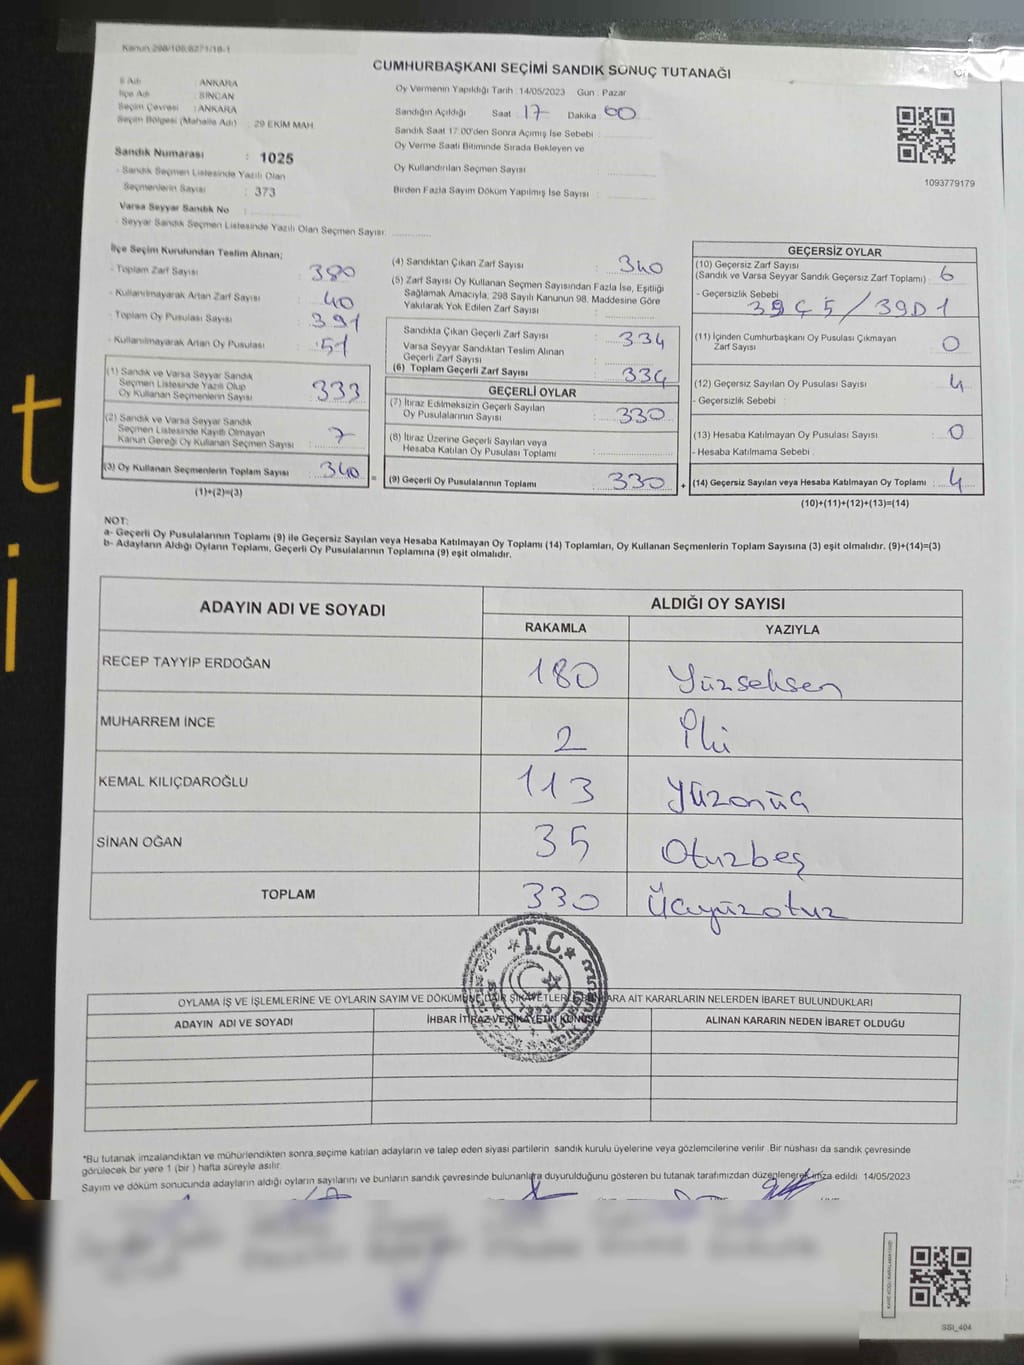 Kanun 298/105,6271/18-1
CUMHURBAŞKANI SEÇİMİ SANDIK SONUÇ TUTANAĞI
İl Adı : ANKARA
İlçe Adı : SİNCAN
Seçim Çevresi : ANKARA
Seçim Bölgesi (Mahalle Adı) : 29 EKİM MAH.
Sandık Numarası : 1025
- Sandık Seçmen Listesinde Yazılı Olan
Seçmenlerin Sayısı : 373
Varsa Seyyar Sandık No :
- Seyyar Sandık Seçmen Listesinde Yazılı Olan Seçmen Sayısı:
Oy Vermenin Yapıldığı Tarih : 14/05/2023 Gün : Pazar
Sandığın Açıldığı Saat 17 Dakika 00
Sandık Saat 17:00'den Sonra Açımış İse Sebebi :
Oy Verme Saati Bitiminde Sırada Bekleyen ve
Oy Kullandırılan Seçmen Sayısı :
Birden Fazla Sayım Döküm Yapılmış İse Sayısı :
1093779179
İlçe Seçim Kurulundan Teslim Alınan;
- Toplam Zarf Sayısı : 380
- Kullanılmayarak Artan Zarf Sayısı : 40
- Toplam Oy Pusulası Sayısı : 391
- Kullanılmayarak Artan Oy Pusulası : 51
(1) Sandık ve Varsa Seyyar Sandık
Seçmen Listesinde Yazılı Olup
Oy Kullanan Seçmenlerin Sayısı : 333
(2) Sandık ve Varsa Seyyar Sandık
Seçmen Listesinde Kayıtlı Olmayan
Kanun Gereği Oy Kullanan Seçmen Sayısı : 7
(3) Oy Kullanan Seçmenlerin Toplam Sayısı : 340
(1)+(2)=(3)
(4) Sandıktan Çıkan Zarf Sayısı : 340
(5) Zarf Sayısı Oy Kullanan Seçmen Sayısından Fazla İse, Eşitliği
Sağlamak Amacıyla, 298 Sayılı Kanunun 98. Maddesine Göre
Yakılarak Yok Edilen Zarf Sayısı :
Sandıkta Çıkan Geçerli Zarf Sayısı : 334
Varsa Seyyar Sandıktan Teslim Alınan
Geçerli Zarf Sayısı :
(6) Toplam Geçerli Zarf Sayısı : 334
GEÇERLİ OYLAR
(7) İtiraz Edilmeksizin Geçerli Sayılan
Oy Pusulalarının Sayısı : 330
(8) İtiraz Üzerine Geçerli Sayılan veya
Hesaba Katılan Oy Pusulası Toplamı :
= (9) Geçerli Oy Pusulalarının Toplamı : 330 +
GEÇERSİZ OYLAR
(10) Geçersiz Zarf Sayısı
(Sandık ve Varsa Seyyar Sandık Geçersiz Zarf Toplamı) : 6
- Geçersizlik Sebebi :
39Ç5/39D1
(11) İçinden Cumhurbaşkanı Oy Pusulası Çıkmayan
Zarf Sayısı : 0
(12) Geçersiz Sayılan Oy Pusulası Sayısı : 4
- Geçersizlik Sebebi :
(13) Hesaba Katılmayan Oy Pusulası Sayısı : 0
- Hesaba Katılmama Sebebi :
(14) Geçersiz Sayılan veya Hesaba Katılmayan Oy Toplamı : 4
(10)+(11)+(12)+(13)=(14)
NOT:
a- Geçerli Oy Pusulalarının Toplamı (9) ile Geçersiz Sayılan veya Hesaba Katılmayan Oy Toplamı (14) Toplamları, Oy Kullanan Seçmenlerin Toplam Sayısına (3) eşit olmalıdır. (9)+(14)=(3)
b- Adayların Aldığı Oyların Toplamı, Geçerli Oy Pusulalarının Toplamına (9) eşit olmalıdır.
ADAYIN ADI VE SOYADI ALDIĞI OY SAYISI
RAKAMLA YAZIYLA
RECEP TAYYİP ERDOĞAN 180 Yüzseksen
MUHARREM İNCE 2 İki
KEMAL KILIÇDAROĞLU 113 Yüzonüç
SİNAN OĞAN 35 Otuzbeş
TOPLAM 330 Üçyüzotuz
T.C.
OYLAMA İŞ VE İŞLEMLERİNE VE OYLARIN SAYIM VE DÖKÜMÜNE DAİR ŞİKAYETLERLE BUNLARA AİT KARARLARIN NELERDEN İBARET BULUNDUKLARI
ADAYIN ADI VE SOYADI İHBAR İTİRAZ VE ŞİKAYETİN KONUSU ALINAN KARARIN NEDEN İBARET OLDUĞU
*Bu tutanak imzalandıktan ve mühürlendikten sonra,seçime katılan adayların ve talep eden siyasi partilerin sandık kurulu üyelerine veya gözlemcilerine verilir. Bir nüshası da sandık çevresinde
görülecek bir yere 1 (bir ) hafta süreyle asılır.
Sayım ve döküm sonucunda adayların aldığı oyların sayılarını ve bunların sandık çevresinde bulunanlara duyurulduğunu gösteren bu tutanak tarafımızdan düzenlenerek imza edildi. 14/05/2023
SSI_404